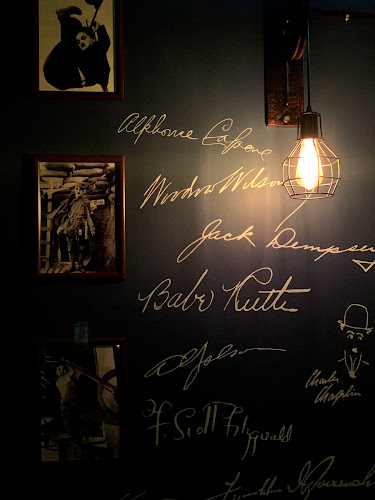 Alphonse Capone
Woodrow Wilson
Jack Dempsey
Babe Ruth
Al Jolson
F. Scott Fitzgerald
Charlie
Chaplin
Franklin D Roosevelt